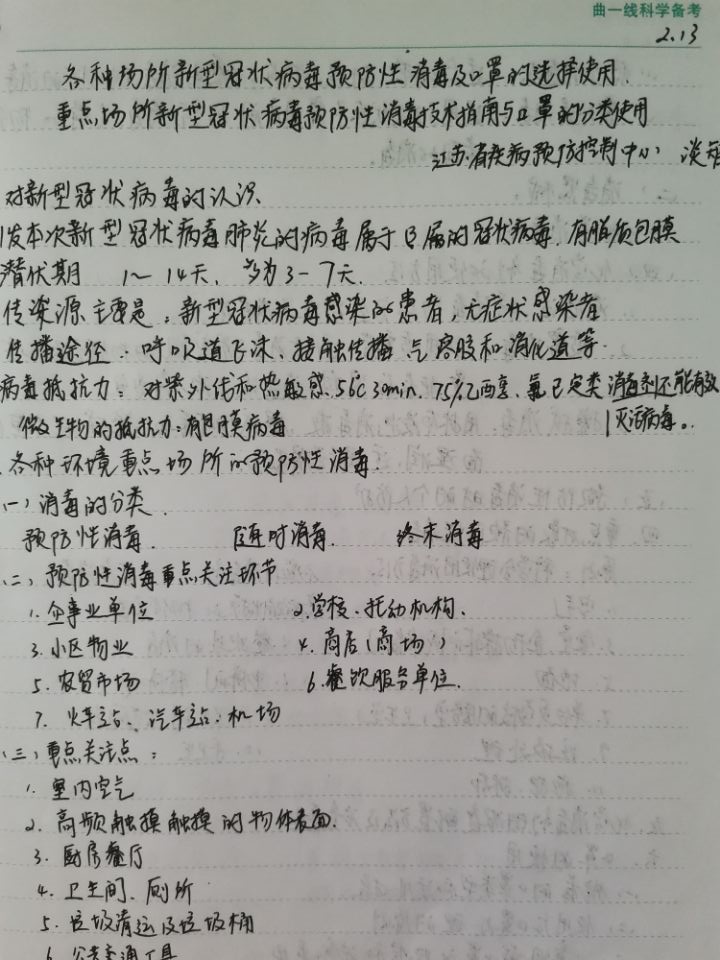 曲一线科学备考
2.13
各种场所新型冠状病毒预防性消毒及口罩的选择使用.
重点场所新型冠状病毒预防性消毒技术指南与口罩的分类使用
江苏省疾病预防控制中心
对新型冠状病毒的认识.
引发本次新型冠状病毒肺炎的病毒属于β属的冠状病毒,有脂质包膜
潜伏期 1~14天, 多为3-7天.
传染源主要是:新型冠状病毒感染的患者,无症状感染者
传播途径:呼吸道飞沫、接触传播 气溶胶和消化道等.
病毒抵抗力:对紫外线和热敏感.56℃30min.75%乙醇、氯己定类消毒剂不能有效
微生物的抵抗力:有包膜病毒 灭活病毒。
各种环境重点场所的预防性消毒.
(一)消毒的分类
预防性消毒. 随时消毒. 终末消毒
(二)预防性消毒重点关注环节
1.企事业单位 2.学校、托幼机构.
3.小区物业 4.商店(商场)
5.农贸市场 6.餐饮服务单位.
7.火车站、汽车站、机场
(三)重点关注点:
1.室内空气
2.高频触摸触摸的物体表面.
3.厨房餐厅
4.卫生间、厕所
5.垃圾清运及垃圾桶
6.公共交通工具